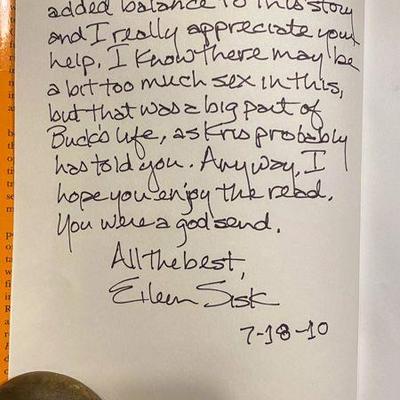 added balance to this story
and I really appreciate your
help. I know there may be
a bit too much sex in this,
but that was a big part of
Buck's life, as Kris probably
has told you. Anyway, I
hope you enjoy the read.
You were a godsend.
All the best,
Eileen Sisk
7-18-10